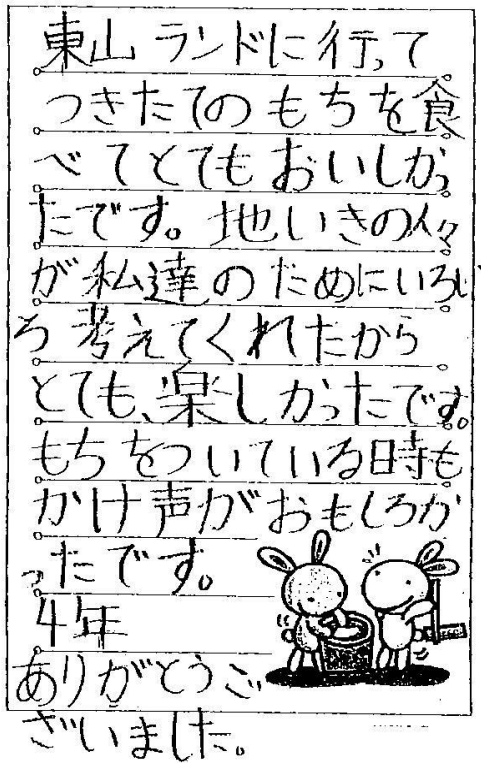 東山ランドに行って
つきたてのもちを食
べてとてもおいしかっ
たです。地いきの人々
が私達のためにいろい
ろ考えてくれたから
とても、楽しかったです。
もちをついている時も
かけ声がおもしろか
ったです。
4年
ありがとうご
ざいました。